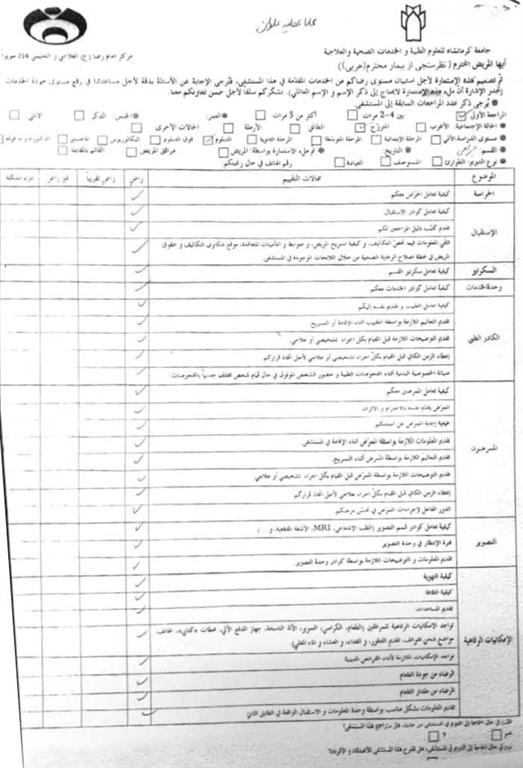 جامعة كرمانشاه للعلوم الطبية و الخدمات الصحية والعلاجية
مركز امام رضا (ع) العلاجي و التعليمي
أيها المريض المحترم (نظرسنجی از بیمار محترم(عربی))
تم تصميم هذه الإستمارة لأجل استبيان مستوى رضاكم من الخدمات المقدّمة في هذا المستشفى، فنرجى الإجابة عن الأسئلة بدقة لأجل مساعدتنا في رفع مستوى جودة الخدمات
(تجدر الإشارة أن ملء هذه الإستمارة لايحتاج إلى ذكر الإسم و الإسم العائلي). نشكركم سلفاً لأجل حسن تعاونكم معنا.
يُرجى ذكر عدد المراجعات السابقة إلى المستشفى:
المراجعة الأولى 2–4 مرات أكثر من 5 مرات العمر: الجنس: الذكر الأنثى
الحالة الإجتماعية: الأعزب المتزوّج الطالق الأرملة الحالات الأخرى
مستوى الدراسة: الأمّي المرحلة الإبتدائية المرحلة المتوسّطة المرحلة الثانوية الدبلوم فوق الدبلوم البكالوريوس الماجستير
القسم: التاريخ: تم ملء الاستمارة بواسطة: المريض مرافق المريض القائم بالمقابلة
نوع التنويم: الطوارئ المستوصف العيادة رقم الهاتف في حال رغبتكم
الموضوع مجالات التقييم راضٍ راضٍ تقريباً غير راضٍ
كيفية تعامل الحرّاس معكم
الإستقبال
كيفية تعامل كوادر الاستقبال
تقديم كتيّب دليل المراجعين لكم
المريض في محطة اصلاح الرعاية الصحية من خلال اللائحات الموجودة في المستشفى.
السكرتير كيفية تعامل سكرتير القسم
وحدةالخدمات كيفية تعامل كوادر الخدمات معكم
الكادر الطبّي
كيفية تعامل الطبيب و تقديم نفسه إليكم
تقديم التعاليم اللازمة بواسطة الطبيب أثناء الإقامة أو التسريح
تقديم التوضيحات اللازمة قبل القيام بكلّ اجراء تشخيصي أو علاجي
إعطاء الزمن الكافي قبل القيام بكلّ اجراء تشخيصي أو علاجي لأجل اتخاذ قراركم
صيانة الخصوصية البدنية أثناء الفحوصات الطبية و حضور الشخص الموثوق في حال قيام شخص مختلف جنسياً بالفحوصات
الممرضون
كيفية تعامل الممرضين معكم
كيفية إجابة الممرّض عن أسئلتكم
تقديم المعلومات اللازمة بواسطة الممرّض أثناء الإقامة في المستشفى
تقديم التعاليم اللازمة بواسطة الممرض أثناء التسريح
تقديم التوضيحات اللازمة بواسطة الممرّض قبل القيام بكلّ اجراء تشخيصي أو علاجي
إعطاء الزمن الكافي قبل القيام بكلّ اجراء علاجي لأجل اتخاذ قراركم
الدور الفاعل لإجراءات الممرّض في تحسّن مرضكم
التصوير
كيفية تعامل كوادر قسم التصوير (الطبّ الإشعاعي، MRI، الأشعة المقطعية، و ...)
فترة الإنتظار في وحدة التصوير
تقديم المعلومات و التوضيحات اللازمة بواسطة كوادر وحدة التصوير
الإمكانيات الرفاهية
كيفية التهوية
كيفية النظافة
تقديم المساعدات
تواجد الإمكانيات الرفاهية للمرافقين (الطعام، الكراسي، السرير، الآلة الناسخة، جهاز الدفع الآلي،
مواضع شحن الهواتف، تقديم الفطور، و الغداء، و العشاء و الماء المغلي)
تواجد الإمكانيات اللازمة لأداء الفرائض الدينية
الرضاء من جودة الطعام
الرضاء من مقدار الطعام
تقديم المعلومات بشكل مناسب بواسطة وحدة المعلومات و الاستقبال الواقعة في الطابق الثاني
نعم لا